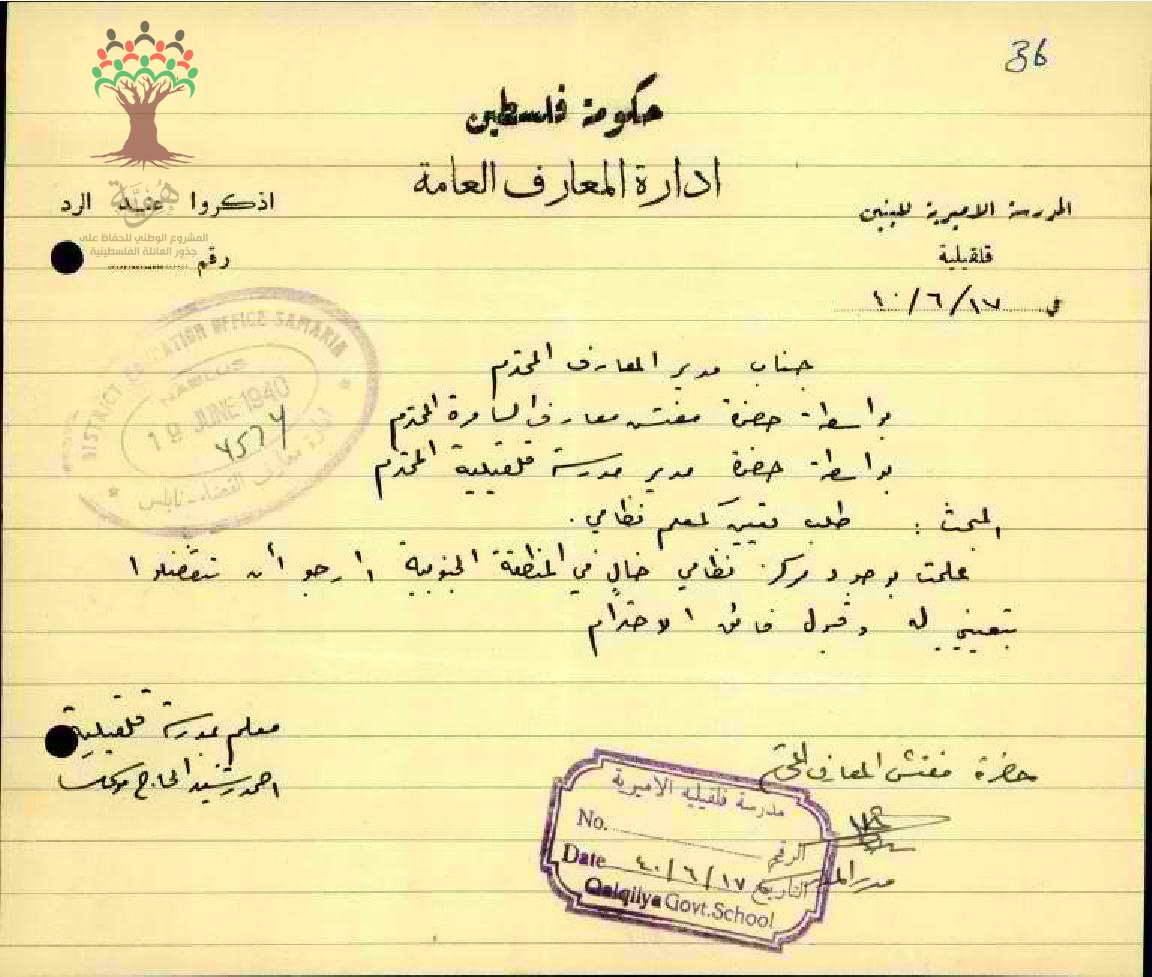 36
حكومة فلسطين
ادارة المعارف العامة
المدرسة الاميرية للبنين
قلقيلية
في ٤٠/٦/١٧
اذكروا عند الرد
رقم
هُويَّة
المشروع الوطني للحفاظ على
جذور العائلة الفلسطينية
DISTRICT EDUCATION OFFICE SAMARIA
NABLUS
19 JUNE 1940
ادارة معارف القضاء - نابلس
جناب مدير المعارف المحترم
بواسطة حضرة مفتش معارف السامرة المحترم
بواسطة حضرة مدير مدرسة قلقيلية المحترم
المبحث : طلب تعيين لمعلم نظامي .
علمت بوجود مركز نظامي خالٍ في المنطقة الجنوبية ارجو أن تتفضلوا
بتعييني له وقبول فائق الاحترام
معلم بمدرسة قلقيلية
احمد رشيد الحاج
حضرة مفتش المعارف المحترم
مدرسة قلقيليه الاميرية
No. الرقم
Date ٤٠/٦/١٧ التاريخ
Qalqilya Govt. School